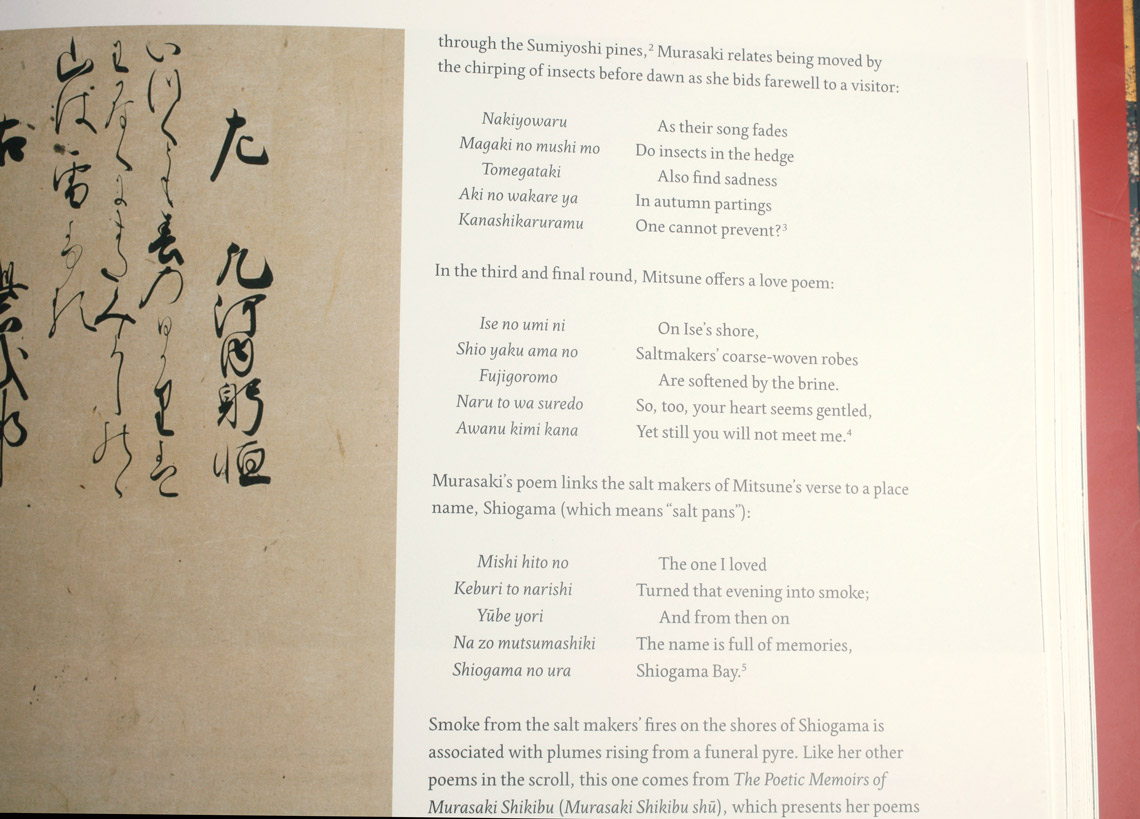 左 凡河内躬恒
いつくとも春のひかりは
わかなくにまたみよしのゝ
山は雪ふる
右 紫式部
through the Sumiyoshi pines,² Murasaki relates being moved by
the chirping of insects before dawn as she bids farewell to a visitor:
Nakiyowaru As their song fades
Magaki no mushi mo Do insects in the hedge
Tomegataki Also find sadness
Aki no wakare ya In autumn partings
Kanashikaruramu One cannot prevent?³
In the third and final round, Mitsune offers a love poem:
Ise no umi ni On Ise's shore,
Shio yaku ama no Saltmakers' coarse-woven robes
Fujigoromo Are softened by the brine.
Naru to wa suredo So, too, your heart seems gentled,
Awanu kimi kana Yet still you will not meet me.⁴
Murasaki's poem links the salt makers of Mitsune's verse to a place
name, Shiogama (which means “salt pans”):
Mishi hito no The one I loved
Keburi to narishi Turned that evening into smoke;
Yūbe yori And from then on
Na zo mutsumashiki The name is full of memories,
Shiogama no ura Shiogama Bay.⁵
Smoke from the salt makers' fires on the shores of Shiogama is
associated with plumes rising from a funeral pyre. Like her other
poems in the scroll, this one comes from The Poetic Memoirs of
Murasaki Shikibu (Murasaki Shikibu shū), which presents her poems